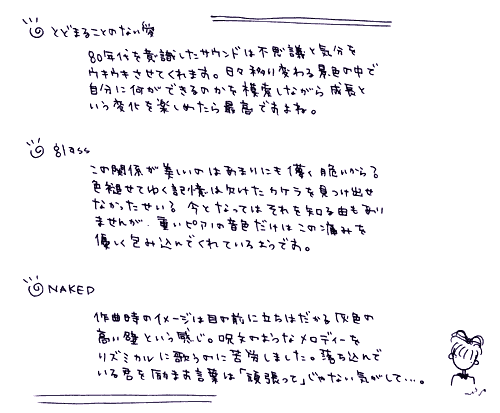 とどまることのない夢
80年代を意識したサウンドは不思議と気分を
ウキウキさせてくれます。日々移り変わる景色の中で
自分に何ができるのかを模索しながら成長と
いう変化を楽しめたら最高ですよね。
glass
この関係が美しいのはあまりにも儚く脆いからる
色褪せてゆく記憶は欠けたカケラを見つけ出せ
なかったせいる 今となってはそれを知る由もあり
ませんが、重いピアノの音色だけはこの痛みを
優しく包み込んでくれているようです。
NAKED
作曲時のイメージは目の前に立ちはだかる灰色の
高い壁という感じ。呪文のようなメロディーを
リズミカルに歌うのに苦労しました。落ち込んで
いる君を励ます言葉は「頑張って」じゃない気がして…。